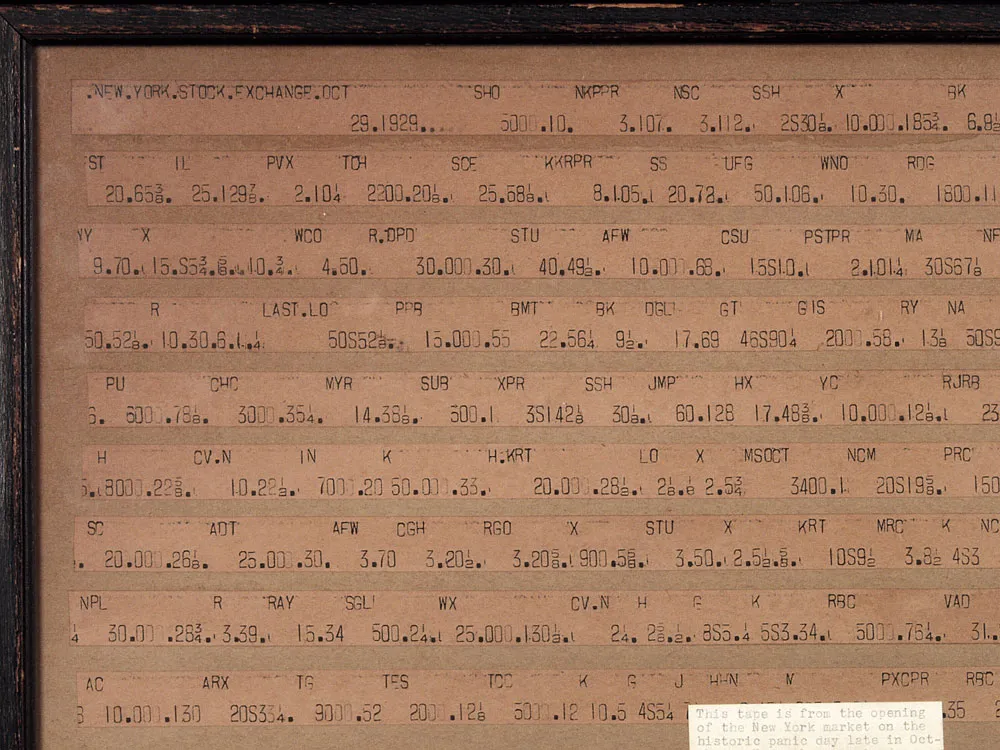 .NEW.YORK.STOCK.EXCHANGE.OCT SHO NKPPR NSC SSH X BK
29.1929... 5000.10. 3.107. 3.112. 2S30⅛. 10.000.185¾.
ST IL PVX TCH SCE KKRPR SS UFG WNO RDG
20.65⅜. 25.129⅞. 2.10¼ 2200.20⅛. 25.68⅛. 8.105. 20.72. 50.106. 10.30. 1800.11
X WCO R.DPD STU AFW CSU PSTPR MA
9.70. 4.50. 30.000.30. 40.49½. 10.000.68. 15S10. 2.101¼ 30S67⅛
R LAST.LO PPB BMT BK DGL GT GIS RY NA
10.30.6.1. 50S52⅛. 15.000.55 22.56¼ 9½. 17.69 46S90¼ 2000.58. 13⅛
PU CHC MYR SUB XPR SSH JMP HX YC RJRB
6000.78⅛. 3000.35¼. 14.38⅛. 500.1 3S142⅛ 30⅛. 60.128 17.48⅜. 10.000.12⅛. 23
H CV.N IN K H.KRT LO X MSOCT NCM PRC
8000.22⅜. 10.22½. 7000.20 50.000.33. 20.000.28½. 2.5¾ 3400.1. 20S19⅝. 150
SC ADT AFW CGH RGO X STU X KRT MRC K NC
20.000.26⅛. 25.000.30. 3.70 3.20½. 3.20⅝. 900.5⅝. 3.50. 2.5½. 10S9½ 3.8½ 4S3
NPL R RAY SGL WX CV.N H K RBC VAD
30.000.28¾. 3.39. 15.34 500.2¼. 25.000.130½. 2¼. 8S5.¼ 5S3.3¼. 5000.76¼. 31.
AC ARX TG TFS TCC K G J HHN PXCPR RBC
10.000.130 20S33¼. 9000.52 2000.12⅛ 5000.12 10.5 4S5¼ .35
This tape is from the opening
of the New York market on the
historic panic day late in Oct-